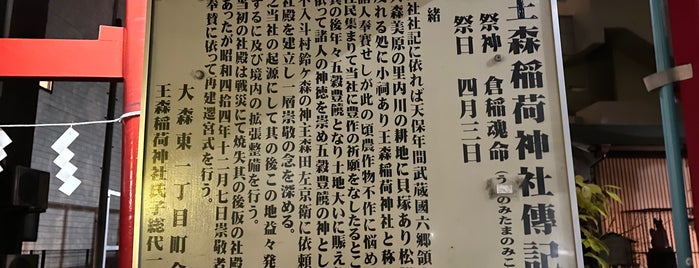 王森稲荷神社傳記
祭神 倉稲魂命(うかのみたまのみこ
祭日 四月三日
緒
社社記に依れば天保年間武蔵國六郷領
森美原の里内川の耕地に貝塚あり松
茂れる処に小祠あり王森稲荷神社と称
諸人奉賽せしが此の頃農作物不作に悩め
住民集まりて当社に豊作の祈願をなしたるとこ
其の後年々五穀豊饒となり土地大いに賑え
依って諸人の神徳を崇め五穀豊饒の神とし
不入斗村鈴ヶ森の神主森田左京衛に依頼
社殿を建立し一層崇敬の念を深める。
之当社の起源にして其の後この地益々発
するに及び境内の拡張整備を行う。
当初の社殿は戦災にて焼失其の後仮の社殿
あったが昭和四拾四年十二月七日崇敬者
奉賛に依って再建遷宮式を行う。
大森東一丁目町会
王森稲荷神社氏子総代一